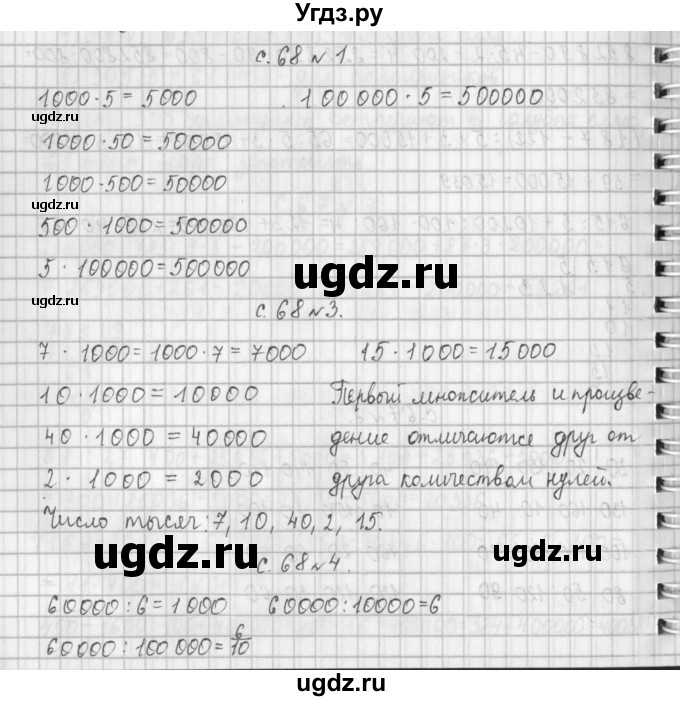 Угдз.ру
с. 68 № 1.
1000 · 5 = 5000 100 000 · 5 = 500000
ugdz.ru
1000 · 50 = 50000
1000 · 500 = 50000
ugdz.ru
500 · 1000 = 500000
5 · 100000 = 500000
ugdz.ru
ugdz.ru
с. 68 № 3.
7 · 1000 = 1000 · 7 = 7000 15 · 1000 = 15000
10 · 1000 = 10000 Первый множитель и произве-
40 · 1000 = 40000 дение отличаются друг от
2 · 1000 = 2000 друга количеством нулей.
Число тысяч: 7, 10, 40, 2, 15.
ugdz.ru
ugdz.ru
с. 68 № 4.
60000 : 6 = 1000 60000 : 10000 = 6
60000 : 100 000 = 6/10
ugdz.ru
ugdz.ru